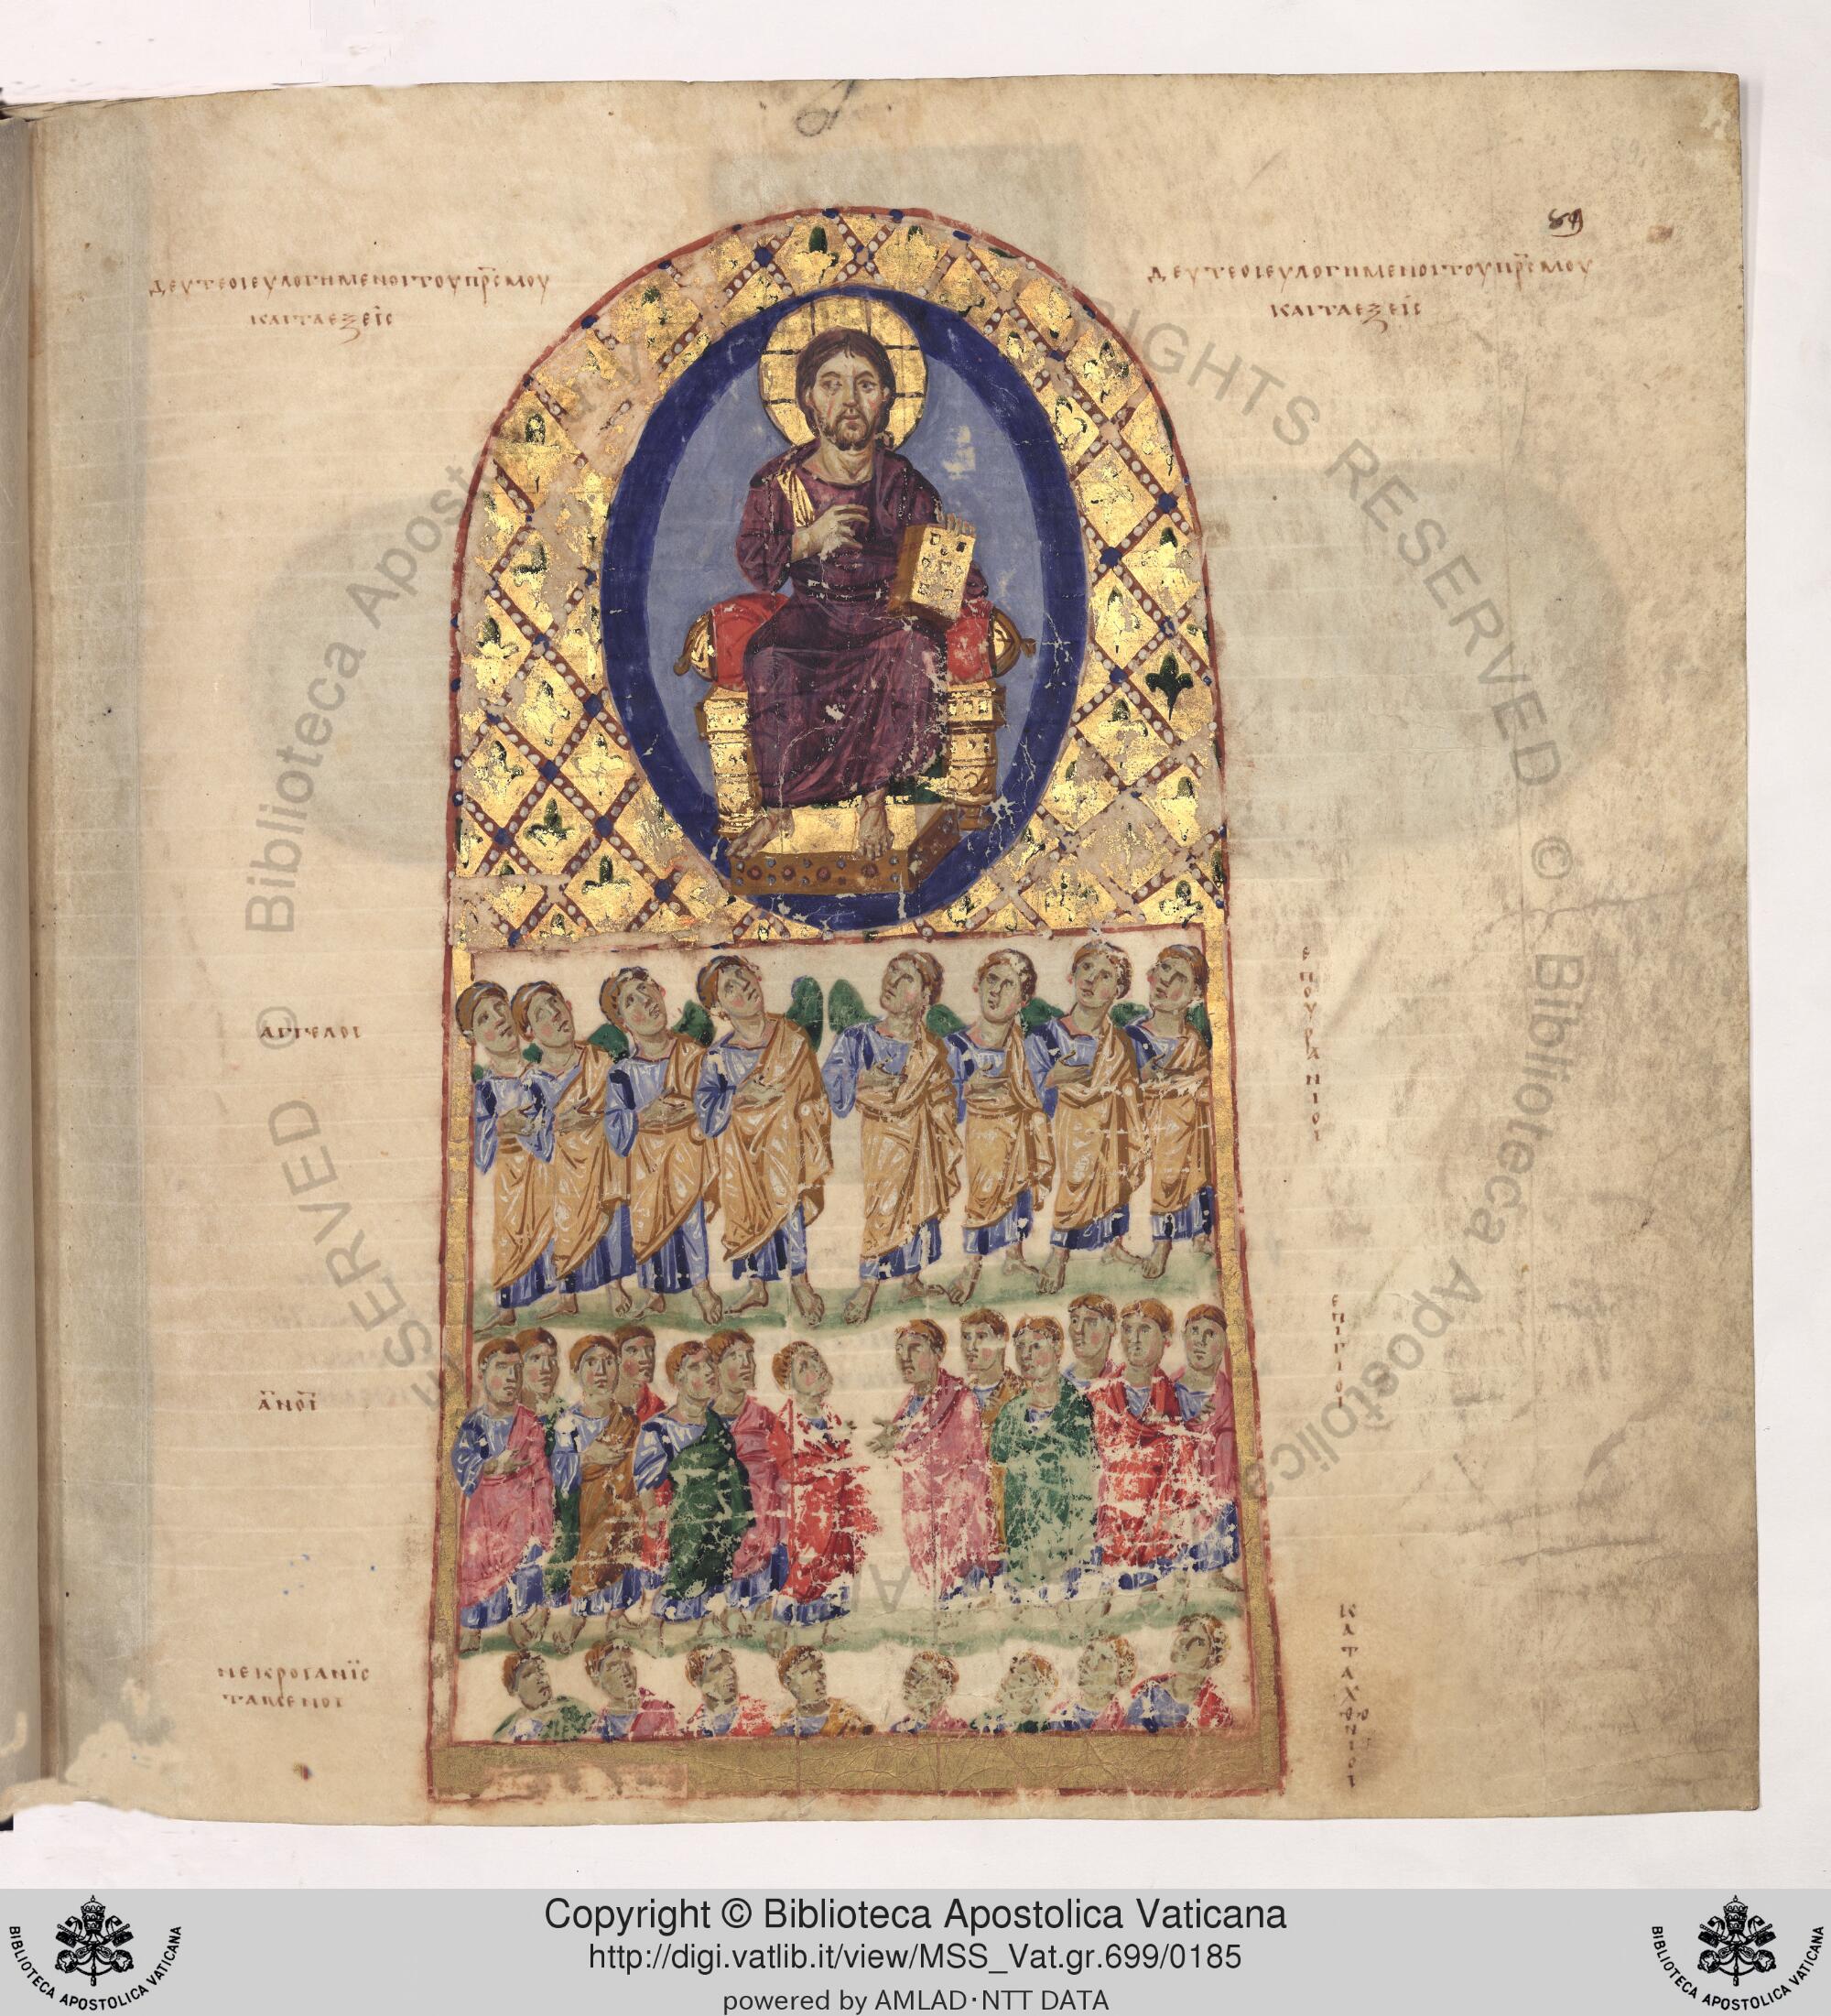 89
ΔΕΥΤΕΟΙΕΥΛΟΓΗΜΕΝΟΙΤΟΥΠΡ̅Σ̅ΜΟΥ
ΚΑΙΤΑΕΞΕΙΣ
ΔΕΥΤΕΟΙΕΥΛΟΓΗΜΕΝΟΙΤΟΥΠΡ̅Σ̅ΜΟΥ
ΚΑΙΤΑΕΞΕΙΣ
ΑΓΓΕΛΟΙ
ΕΠΟΥΡΑΝΙΟΙ
ΑΝΟΙ
ΕΠΙΓΙΟΙ
ΝΕΚΡΟΙΑΝΙΣ
ΤΑΜΕΝΟΙ
ΚΑΤΑΧΘΟΝΙΟΙ
© Biblioteca Apostolica Vaticana
RIGHTS RESERVED © Biblioteca Apostolica
Copyright © Biblioteca Apostolica Vaticana
http://digi.vatlib.it/view/MSS_Vat.gr.699/0185
powered by AMLAD·NTT DATA
BIBLIOTECA APOSTOLICA VATICANA
BIBLIOTECA APOSTOLICA VATICANA